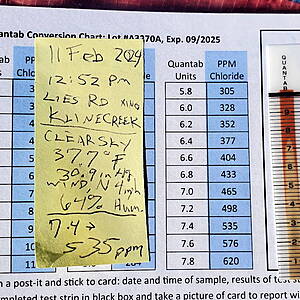 antab Conversion Chart: Lot #A3370A, Exp. 09/2025
Quantab Units
PPM Chloride
5.8 305
6.0 328
6.2 352
6.4 377
6.6 404
6.8 433
7.0 465
7.2 498
7.4 535
7.6 576
7.8 620
11 Feb 2024
12:52 pm
LIES RD XING
KLINECREEK
CLEARSKY
37.7°F
30.9 in Hg
WIND, N 4 mph
64% Hum.
7.4 →
535 ppm
QUANTAB
a post-it and stick to card: date and time of sample, results of test
completed test strip in black box and take a picture of card to report wi